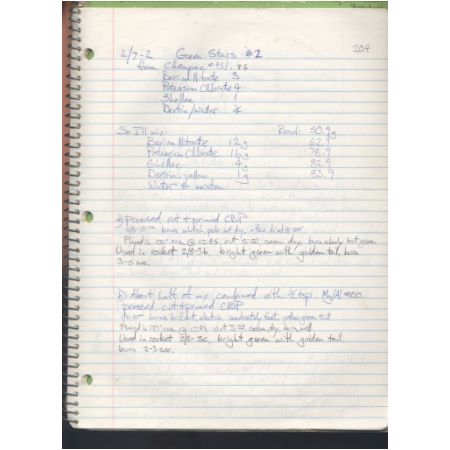 2/7-2 Green Stars #2 204
from Champaq #45/
Barium Nitrate 3
Potassium Chlorate 4
Shellac 1
Dextrin/water
So I'll mix: Read: 50.9g
Barium Nitrate 12g 62.9
Potassium Chlorate 16g 78.9
Shellac 4g 82.9
Dextrin, yellow 1g 83.9
Water to moisten
a) pressed, cut + primed CBP
burns
Placed in 100° oven @ out 5:00, seem dry, burn slowly but green
Used in rocket 2/8-3b, bright green with golden tail, burn
3-5 sec.
b) About half of mix combined with 1/2 tsp. Mg/Al
pressed, cut + primed CBP
burns bright
Placed in 100° oven @ out seem dry, burn well
Used in rocket 2/8-3c, bright green with golden tail.
burn 2-3 sec.